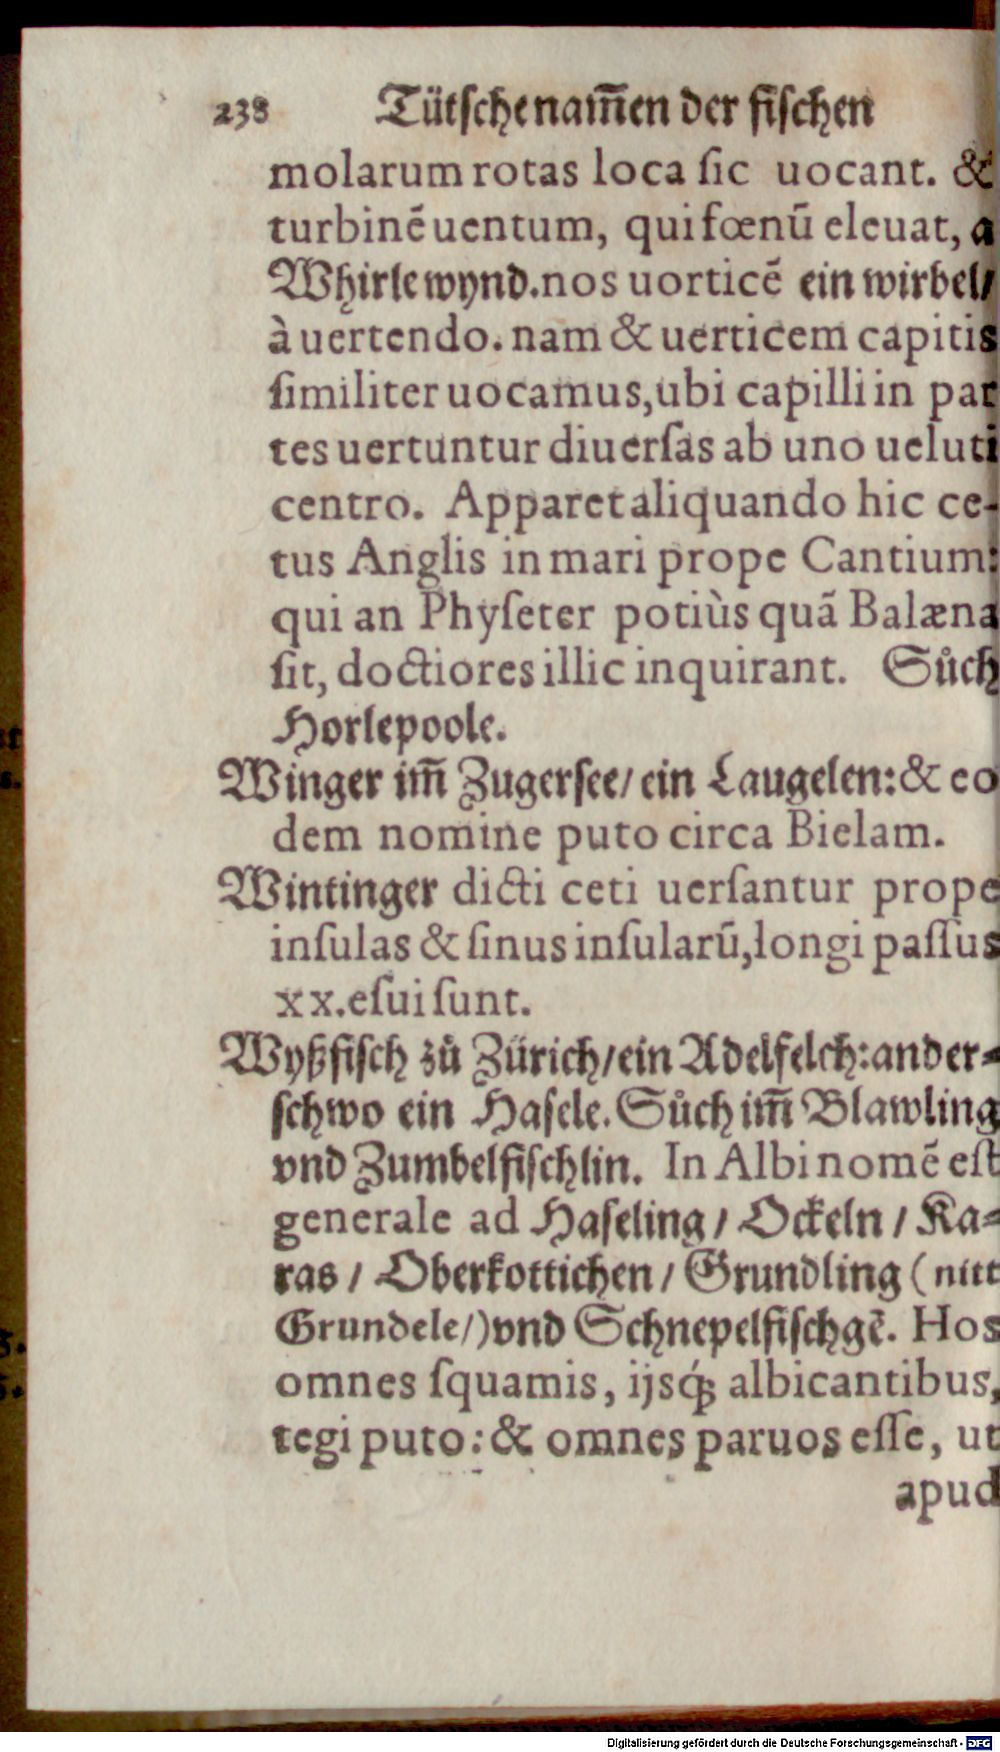 238 Tütsche nam̃en der fischen
molarum rotas loca ſic uocant. &
turbinẽ uentum, qui fœnũ eleuat, a
Whirlewynd. nos uorticẽ ein wirbel/
à uertendo. nam & uerticem capitis
ſimiliter uocamus, ubi capilli in par
tes uertuntur diuerſas ab uno ueluti
centro. Apparet aliquando hic ce-
tus Anglis in mari prope Cantium:
qui an Phyſeter potiùs quã Balæna
ſit, doctiores illic inquirant. Sůch
Horlepoole.
Winger im̃ Zugersee/ ein Laugelen: & eo
dem nomine puto circa Bielam.
Wintinger dicti ceti uerſantur prope
inſulas & ſinus inſularũ, longi paſſus
xx. eſui ſunt.
Wyßfiſch zů Zürich/ ein Adelfelch: ander-
ſchwo ein Haſele. Sůch im̃ Blawling
vnd Zumbelfiſchlin. In Albi nomẽ eſt
generale ad Haſeling/ Ockeln/ Ka-
ras/ Oberkottichen/ Grundling (nitt
Grundele/) vnd Schnepelfiſchgẽ. Hos
omnes ſquamis, ijsq́; albicantibus,
tegi puto: & omnes paruos eſſe, ut
apud
Digitalisierung gefördert durch die Deutsche Forschungsgemeinschaft - DFG